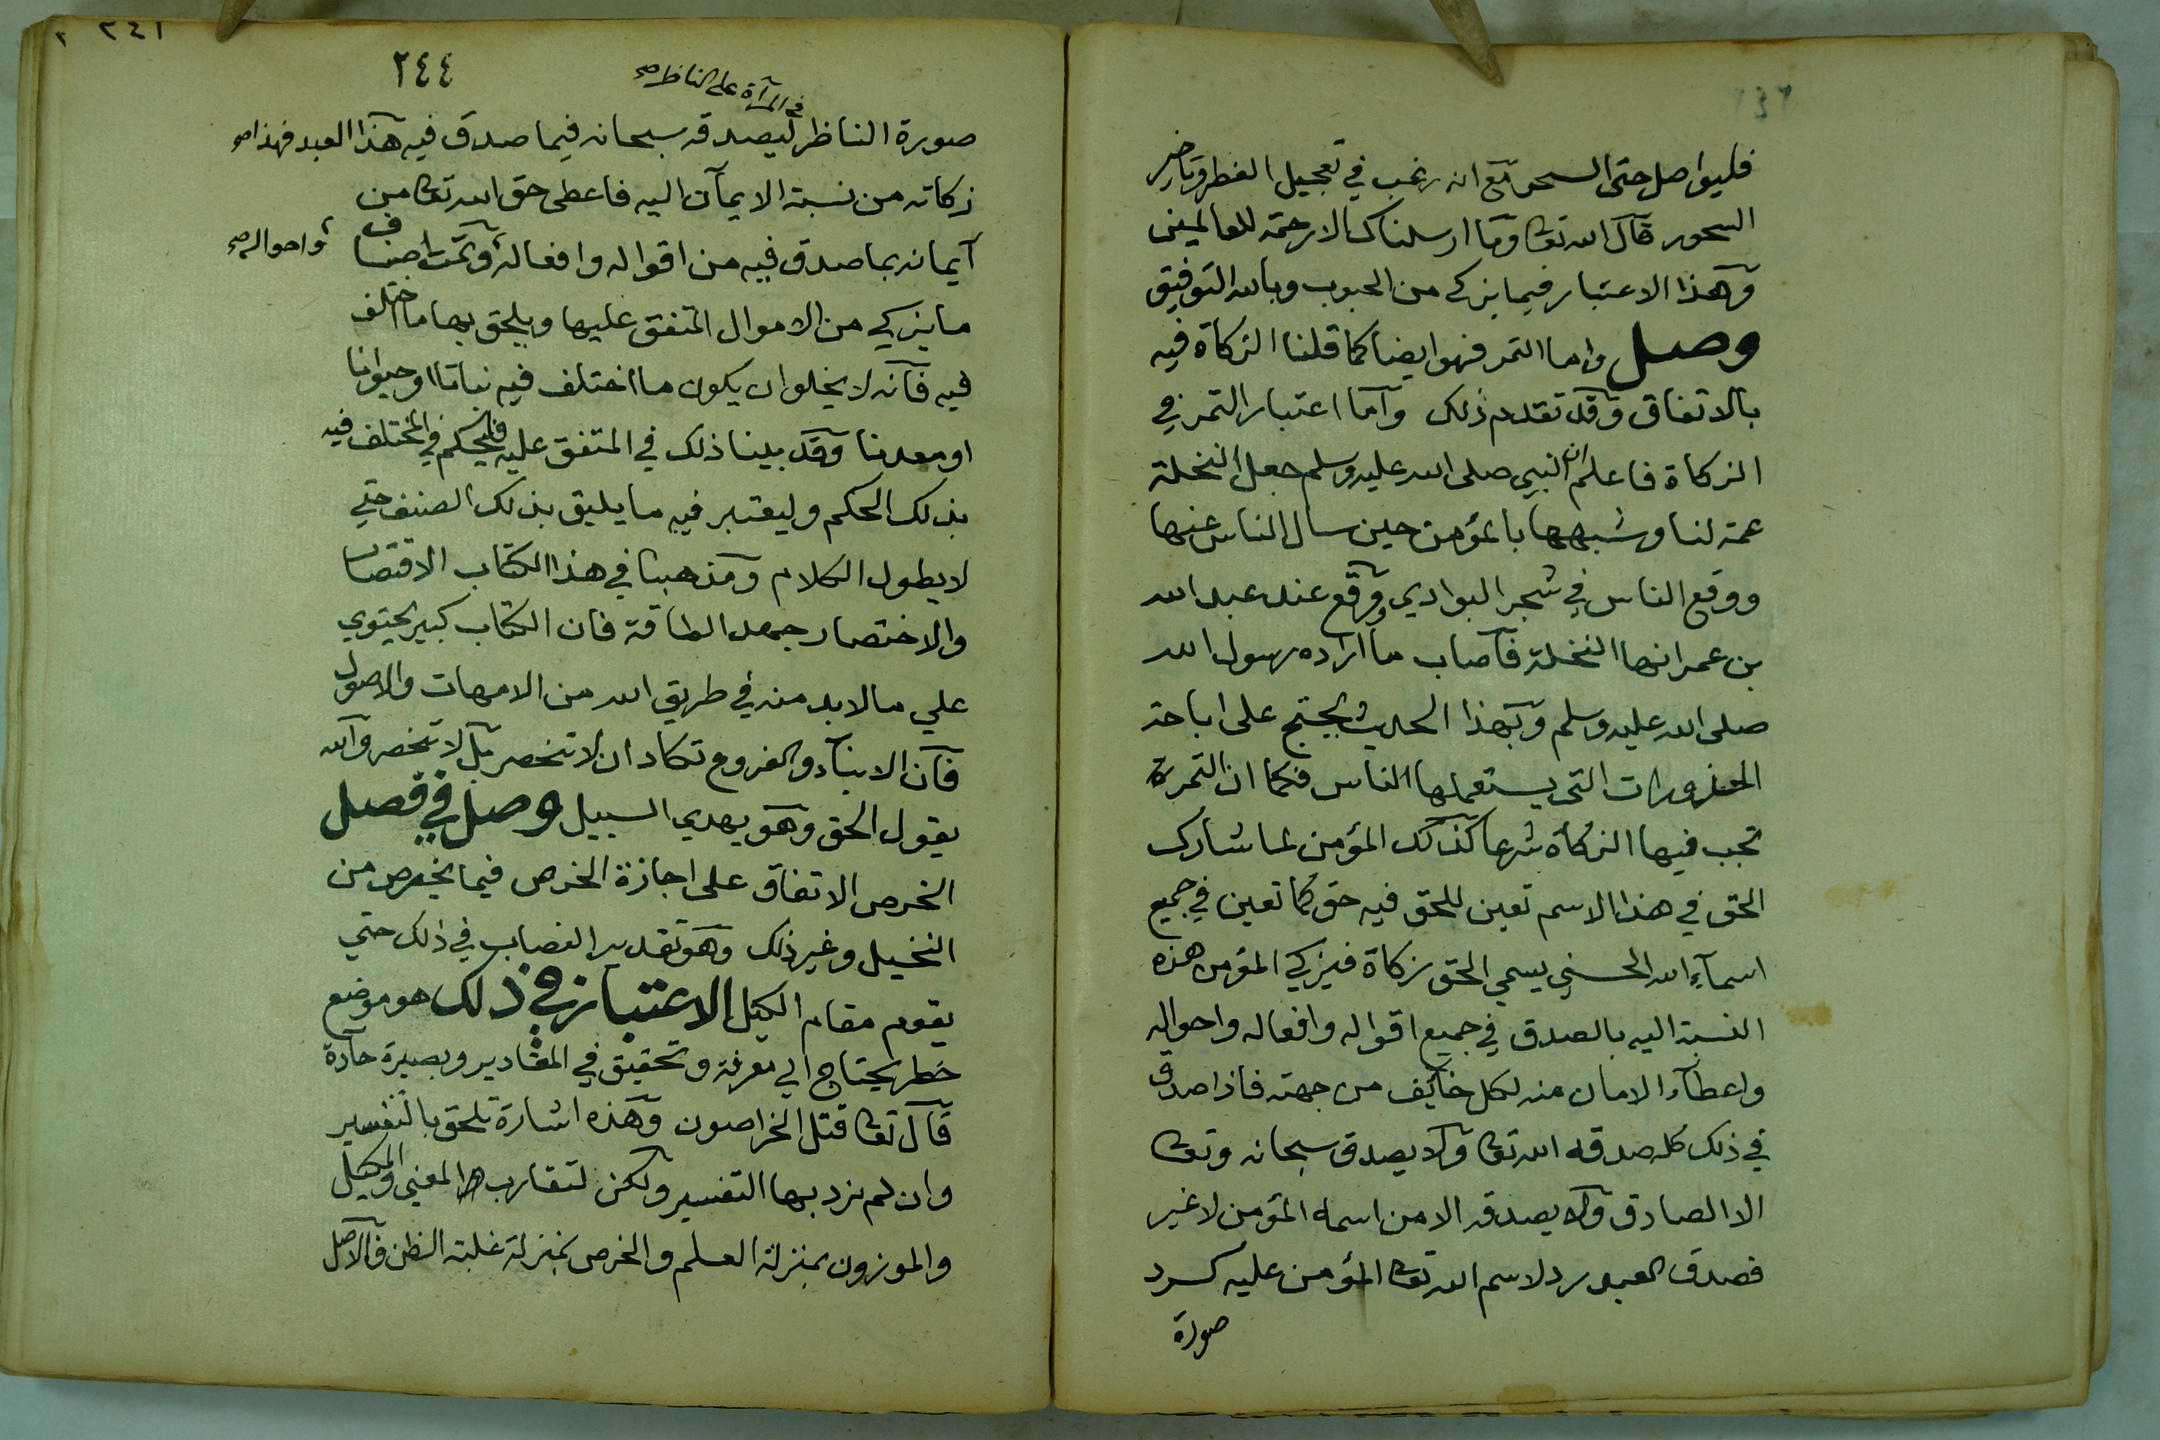 فليواصل حتى السحر مع انه رغب في تعجيل الفطر وتاخير
السحور قال الله تعا وما ارسلناك الا رحمة للعالمين
وهذا الاعتبار فيما يزكي من الحبوب وبالله التوفيق
وصل واما التمر فهو ايضا كما قلنا الزكاة فيه
بالاتفاق وقد تقدم ذلك واما اعتبار التمر في
الزكاة فاعلم ان النبي صلى الله عليه وسلم جعل النخلة
عمة لنا وشبهها بالمؤمن حين سال الناس عنها
ووقع الناس في شجر البوادي ووقع عند عبد الله
بن عمر انها النخلة فاصاب ما اراده رسول الله
صلى الله عليه وسلم وبهذا الحديث يحتج على اباحة
الحزورات التي يستعملها الناس فكما ان التمرة
تجب فيها الزكاة شرعا كذلك المؤمن لما شارك
الحق في هذا الاسم تعين للحق فيه حق كما تعين في جميع
اسمآء الله الحسني يسمي الحق زكاة فيزكي المؤمن هذه
النسبة اليه بالصدق في جميع اقواله وافعاله واحواله
واعطآء الامان منه لكل خايف من جهته فاذا صدق
في ذلك كله صدقه الله تعا ولا يصدق سبحانه وتعا
الا الصادق ولا يصدقه الا من اسمه المؤمن لا غير
فصدق العبد رد لاسم الله تعا المؤمن عليه كرد
صورة
٢٤١
٢٤٤
في المرآة على الناظر صح
صورة الناظر ليصدقه سبحانه فيما صدق فيه هذا العبد فهذا هو
زكاته من نسبة الايمان اليه فاعطى حق الله تعا من
آيمانه بما صدق فيه من اقواله وافعاله وتمت اصناف
واحواله صح
ما يزكي من الاموال المتفق عليها ويلحق بها ما اختلف
فيه فانه لا يخلو ان يكون ما اختلف فيه نباتا او حيوانا
او معدنا وقد بينا ذلك في المتفق عليه فليحكم في المختلف فيه
بذلك الحكم وليعتبر فيه ما يليق بذلك الصنف حتي
لا يطول الكلام ومذهبنا في هذا الكتاب الاقتصار
والاختصار جهد الطاقة فان الكتاب كبير يحتوي
علي ما لا بد منه في طريق الله من الامهات والاصول
فان الابنآء والفروع تكاد ان لا تنحصر بل لا تنحصر والله
يقول الحق وهو يهدي السبيل وصل في فصل
الخرص الاتفاق على اجازة الخرص فيما يخرص من
النخيل وغير ذلك وهو تقدير النصاب في ذلك حتي
يقوم مقام الكيل الاعتبار في ذلك هو موضع
خطر يحتاج الي معرفة وتحقيق في المقادير وبصيرة حادة
قال تعا قتل الخراصون وهذه اشارة تلحق بالتفسير
وان لم نرد بها التفسير ولكن لتقارب المعني والمكيل
والموزون بمنزلة العلم والخرص بمنزلة غلبة الظن فالاصل